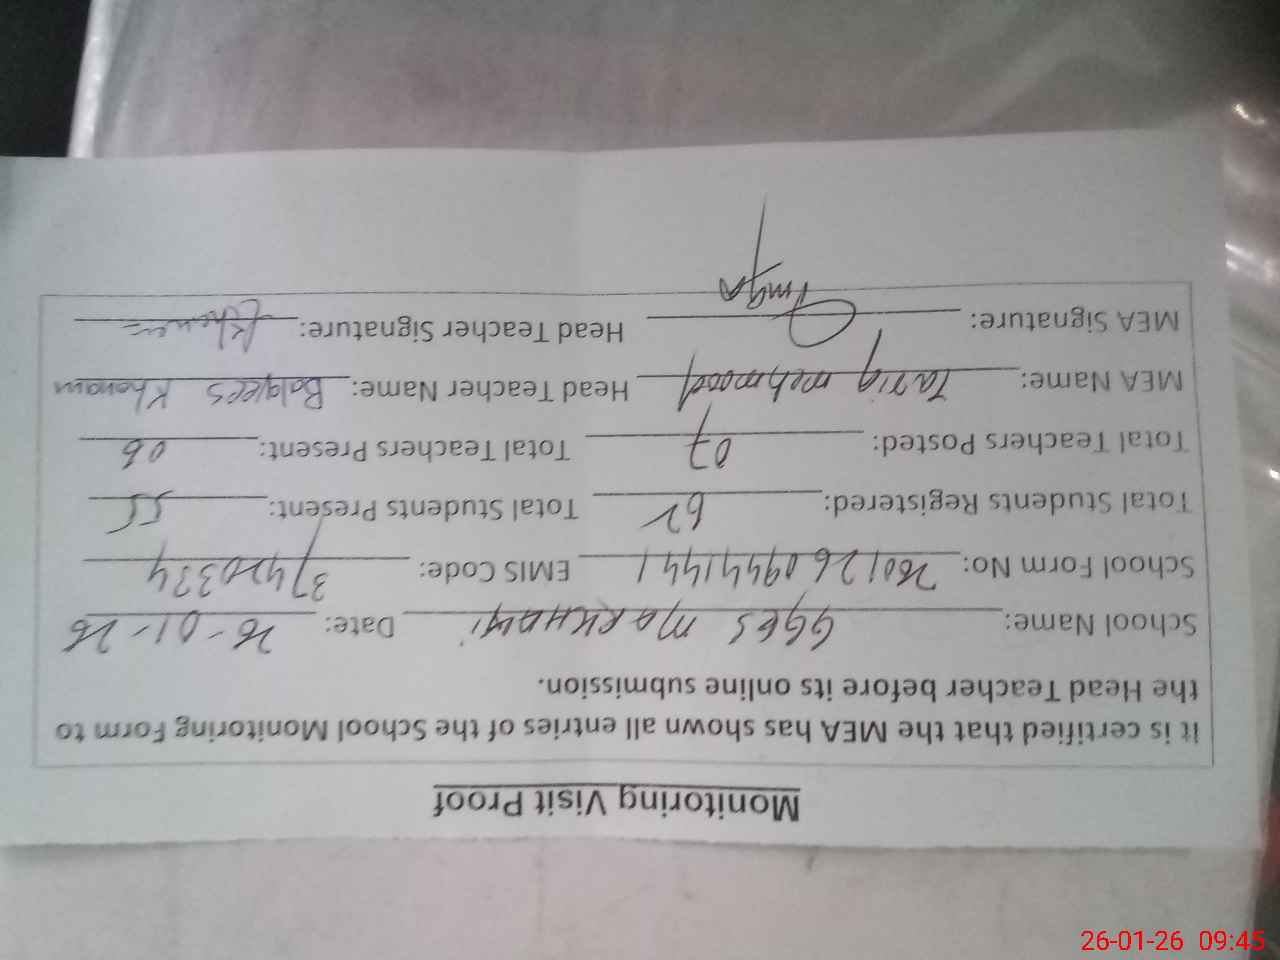 Monitoring Visit Proof
it is certified that the MEA has shown all entries of the School Monitoring Form to
the Head Teacher before its online submission.
School Name: GGES MARKHAMI Date: 26-01-26
School Form No: 2601260944141 EMIS Code: 37420334
Total Students Registered: 62 Total Students Present: 55
Total Teachers Posted: 07 Total Teachers Present: 06
MEA Name: Tariq mehmood Head Teacher Name: Balqees Khanam
MEA Signature: Head Teacher Signature:
26-01-26 09:45